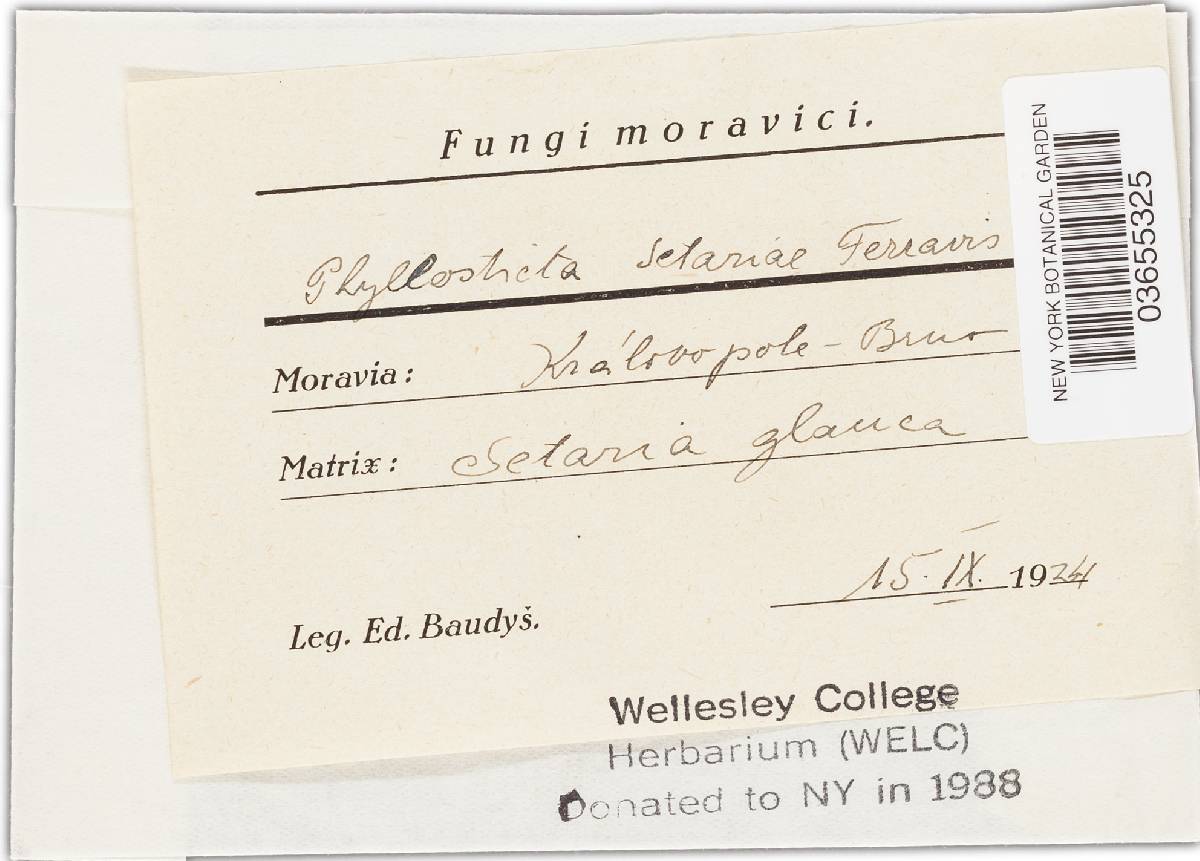 Fungi moravici.
Phyllosticta Setariae Ferraris
Moravia: Královopole - Brno
Matrix: Setaria glauca
15. IX. 1924
Leg. Ed. Baudyš.
Wellesley College
Herbarium (WELC)
Donated to NY in 1988
NEW YORK BOTANICAL GARDEN
03655325